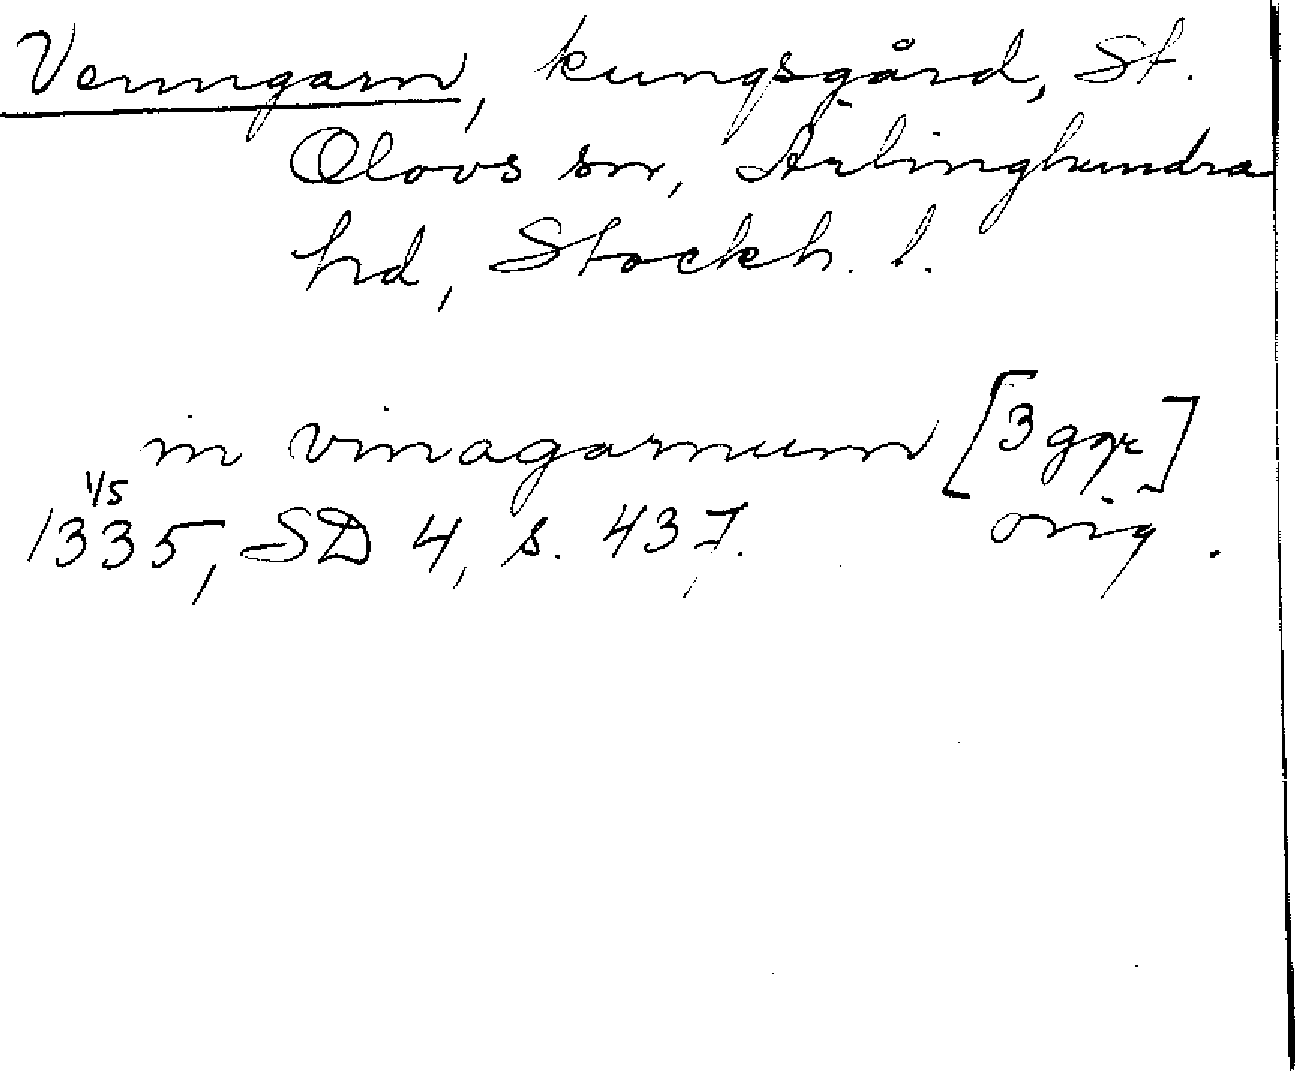 Venngarn, kungsgård, St.
Olovs sn, Ärlinghundra
hd, Stockh. l.
in vinagarnum [3 ggr]
1/5 orig.
1335, SD 4, s. 437.